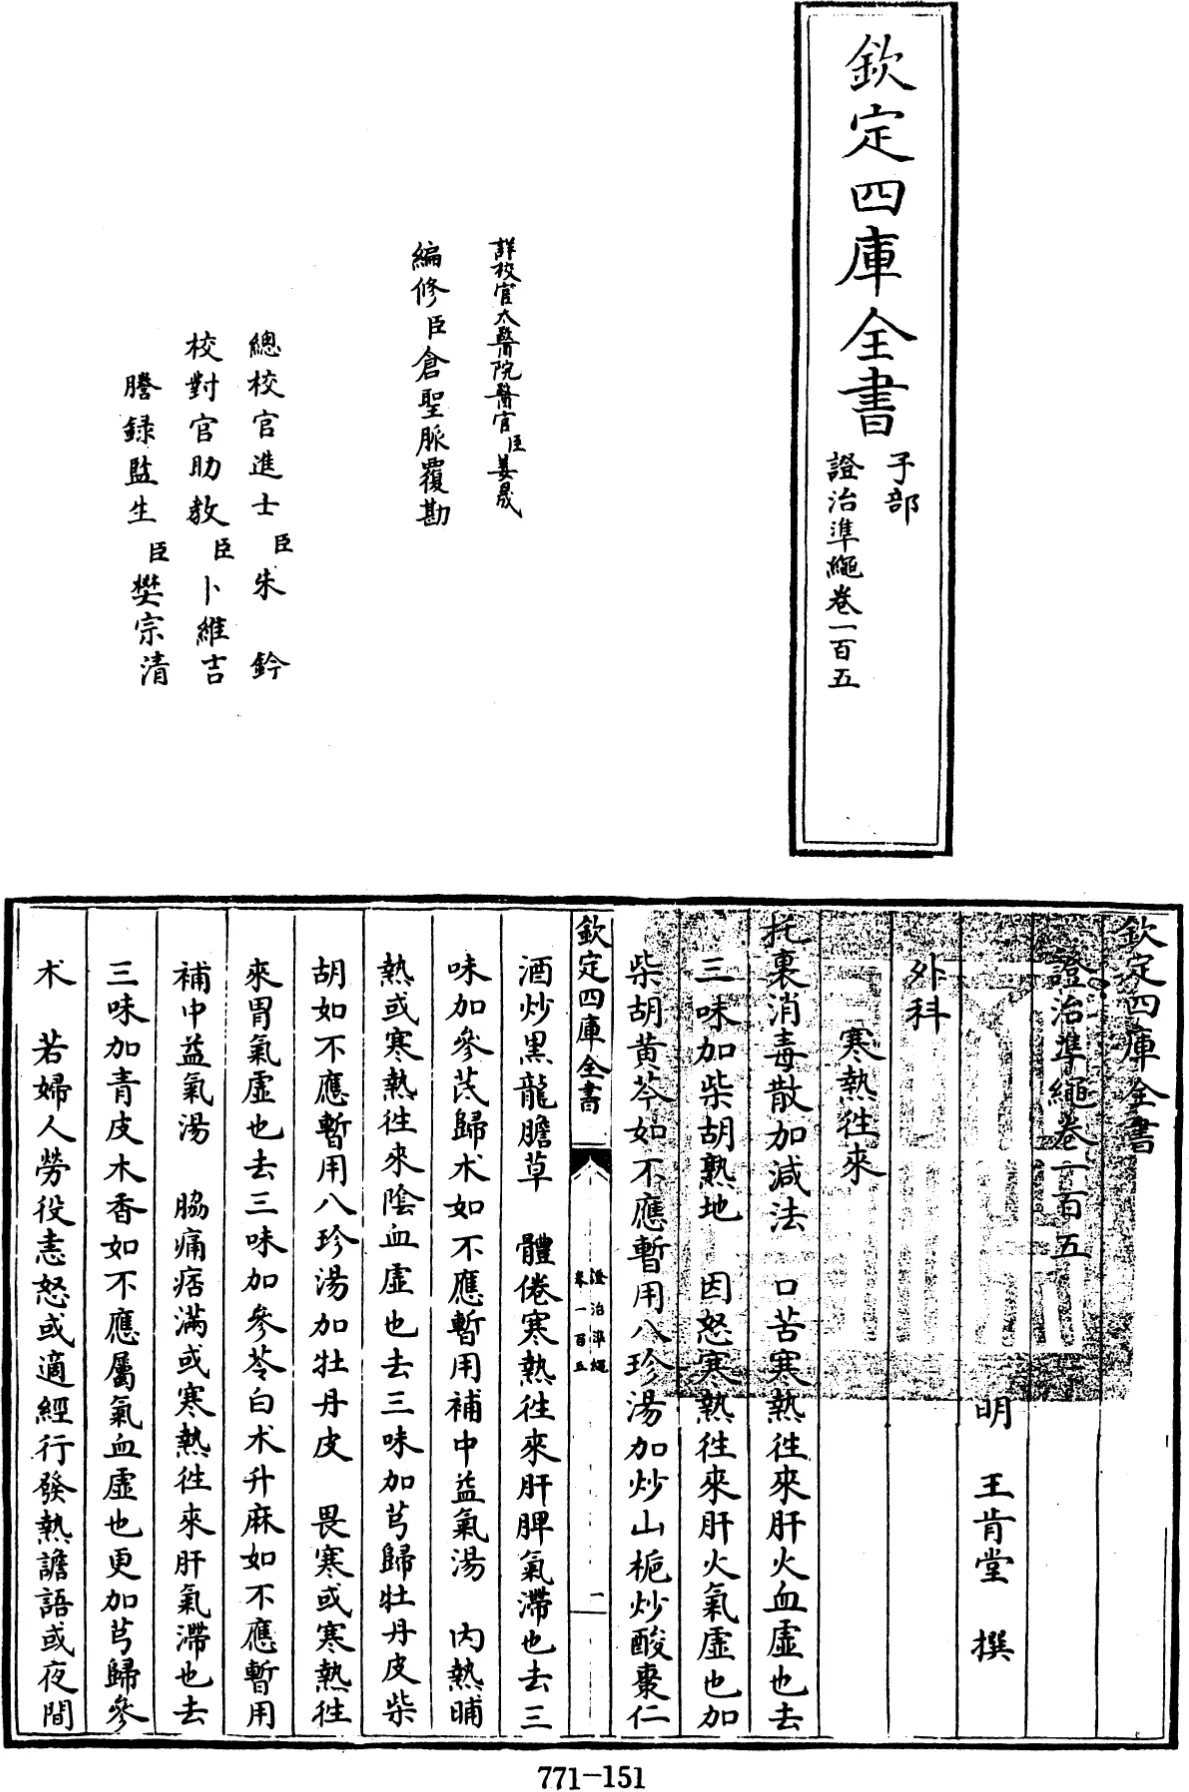 欽定四庫全書
子部
證治準繩卷一百五
詳校官太醫院醫官臣姜晟
編修臣倉聖脈覆勘
總校官進士臣朱鈐
校對官助教臣卜維吉
謄録監生臣樊宗清
欽定四庫全書
證治準繩卷一百五
明 王肯堂 撰
外科
寒熱徃來
托裏消毒散加減法 口苦寒熱徃來肝火血虛也去
三味加柴胡熟地 因怒寒熱徃來肝火氣虛也加
柴胡黄芩如不應暫用八珍湯加炒山梔炒酸棗仁
欽定四庫全書
證治準繩
卷一百五
一
酒炒黑龍膽草 體倦寒熱徃來肝脾氣滯也去三
味加參芪歸术如不應暫用補中益氣湯 内熱晡
熱或寒熱徃來陰血虛也去三味加芎歸牡丹皮柴
胡如不應暫用八珍湯加牡丹皮 畏寒或寒熱徃
來胃氣虛也去三味加參苓白术升麻如不應暫用
補中益氣湯 脇痛痞滿或寒熱徃來肝氣滯也去
三味加青皮木香如不應屬氣血虛也更加芎歸參
术 若婦人勞役恚怒或適經行發熱譫語或夜間
771-151